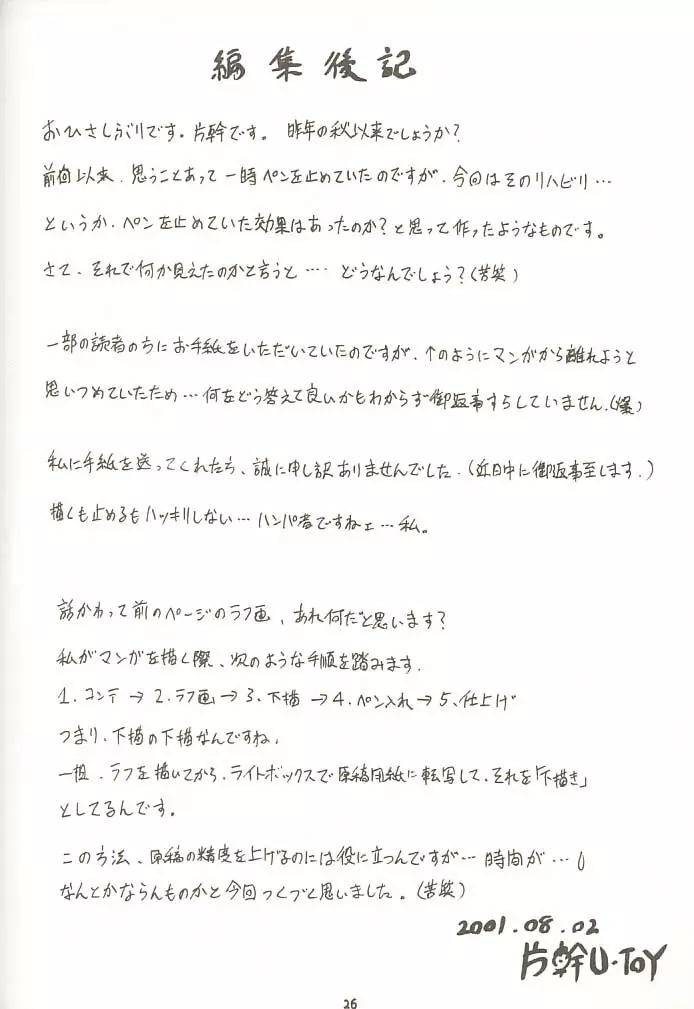 編集後記
おひさしぶりです。片幹です。昨年の秋以来でしょうか?
前回以来、思うことあって一時ペンを止めていたのですが、今回はそのリハビリ…
というか、ペンを止めていた効果はあったのか?と思って作ったようなものです。
さて、それで何か見えたのかと言うと…. どうなんでしょう?(苦笑)
一部の読者の方にお手紙をいただいていたのですが、↑のようにマンガから離れようと
思いつめていたため…何をどう答えて良いかもわからず御返事すらしていません。(爆)
私に手紙を送ってくれた方、誠に申し訳ありませんでした。(近日中に御返事至します。)
描くも止めるもハッキリしない…ハンパ者ですねェ…私。
話かわって前のページのラフ画、あれ何だと思います?
私がマンガを描く際、次のような手順を踏みます.
1.コンテ→2.ラフ画→3.下描→4.ペン入れ→5.仕上げ
つまり、下描の下描なんですね。
一担、ラフを描いてから、ライトボックスで原稿用紙に転写して、それを「下描き」
としてるんです。
この方法、原稿の精度を上げるのには役に立つんですが…時間が…
なんとかならんものかと今回つくづくと思いました。(苦笑)
2001.08.02
片幹U・ToY
26